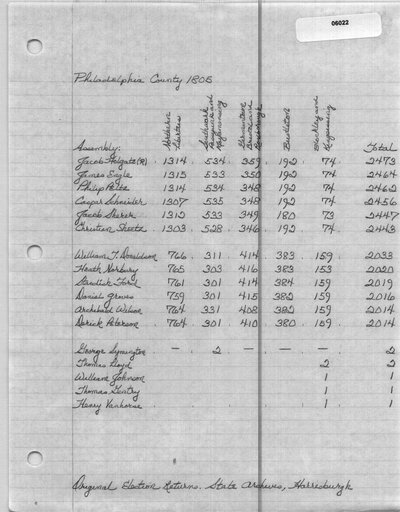 06022
Philadelphia County 1805
Northern Liberties
Germantown
Bustleton
Blockley and Kingsessing
Assembly:
Total
Jacob Holgate (R) 1314 534 359 192 74 2473
James Engle 1315 533 350 192 74 2464
Philip Peltz 1314 534 348 192 74 2462
Caspar Schneider 1307 535 348 192 74 2456
Jacob Shearer 1312 533 349 180 73 2447
Christian Sheetz 1303 528 346 192 74 2443
William T. Donaldson 766 311 414 383 159 2033
Heath Norbury 765 303 416 383 153 2020
Standish Ford 761 301 414 384 159 2019
Daniel Groves 759 301 415 382 159 2016
Archibald Wilson 764 331 408 382 159 2014
Derick Peterson 764 301 410 380 159 2014
George Symington — 2 — — — 2
Thomas Lloyd 2 2
William Johnson 1 1
Thomas Gentry 1 1
Henry Vanhorne 1 1
Original Election Returns. State Archives, Harrisburgh